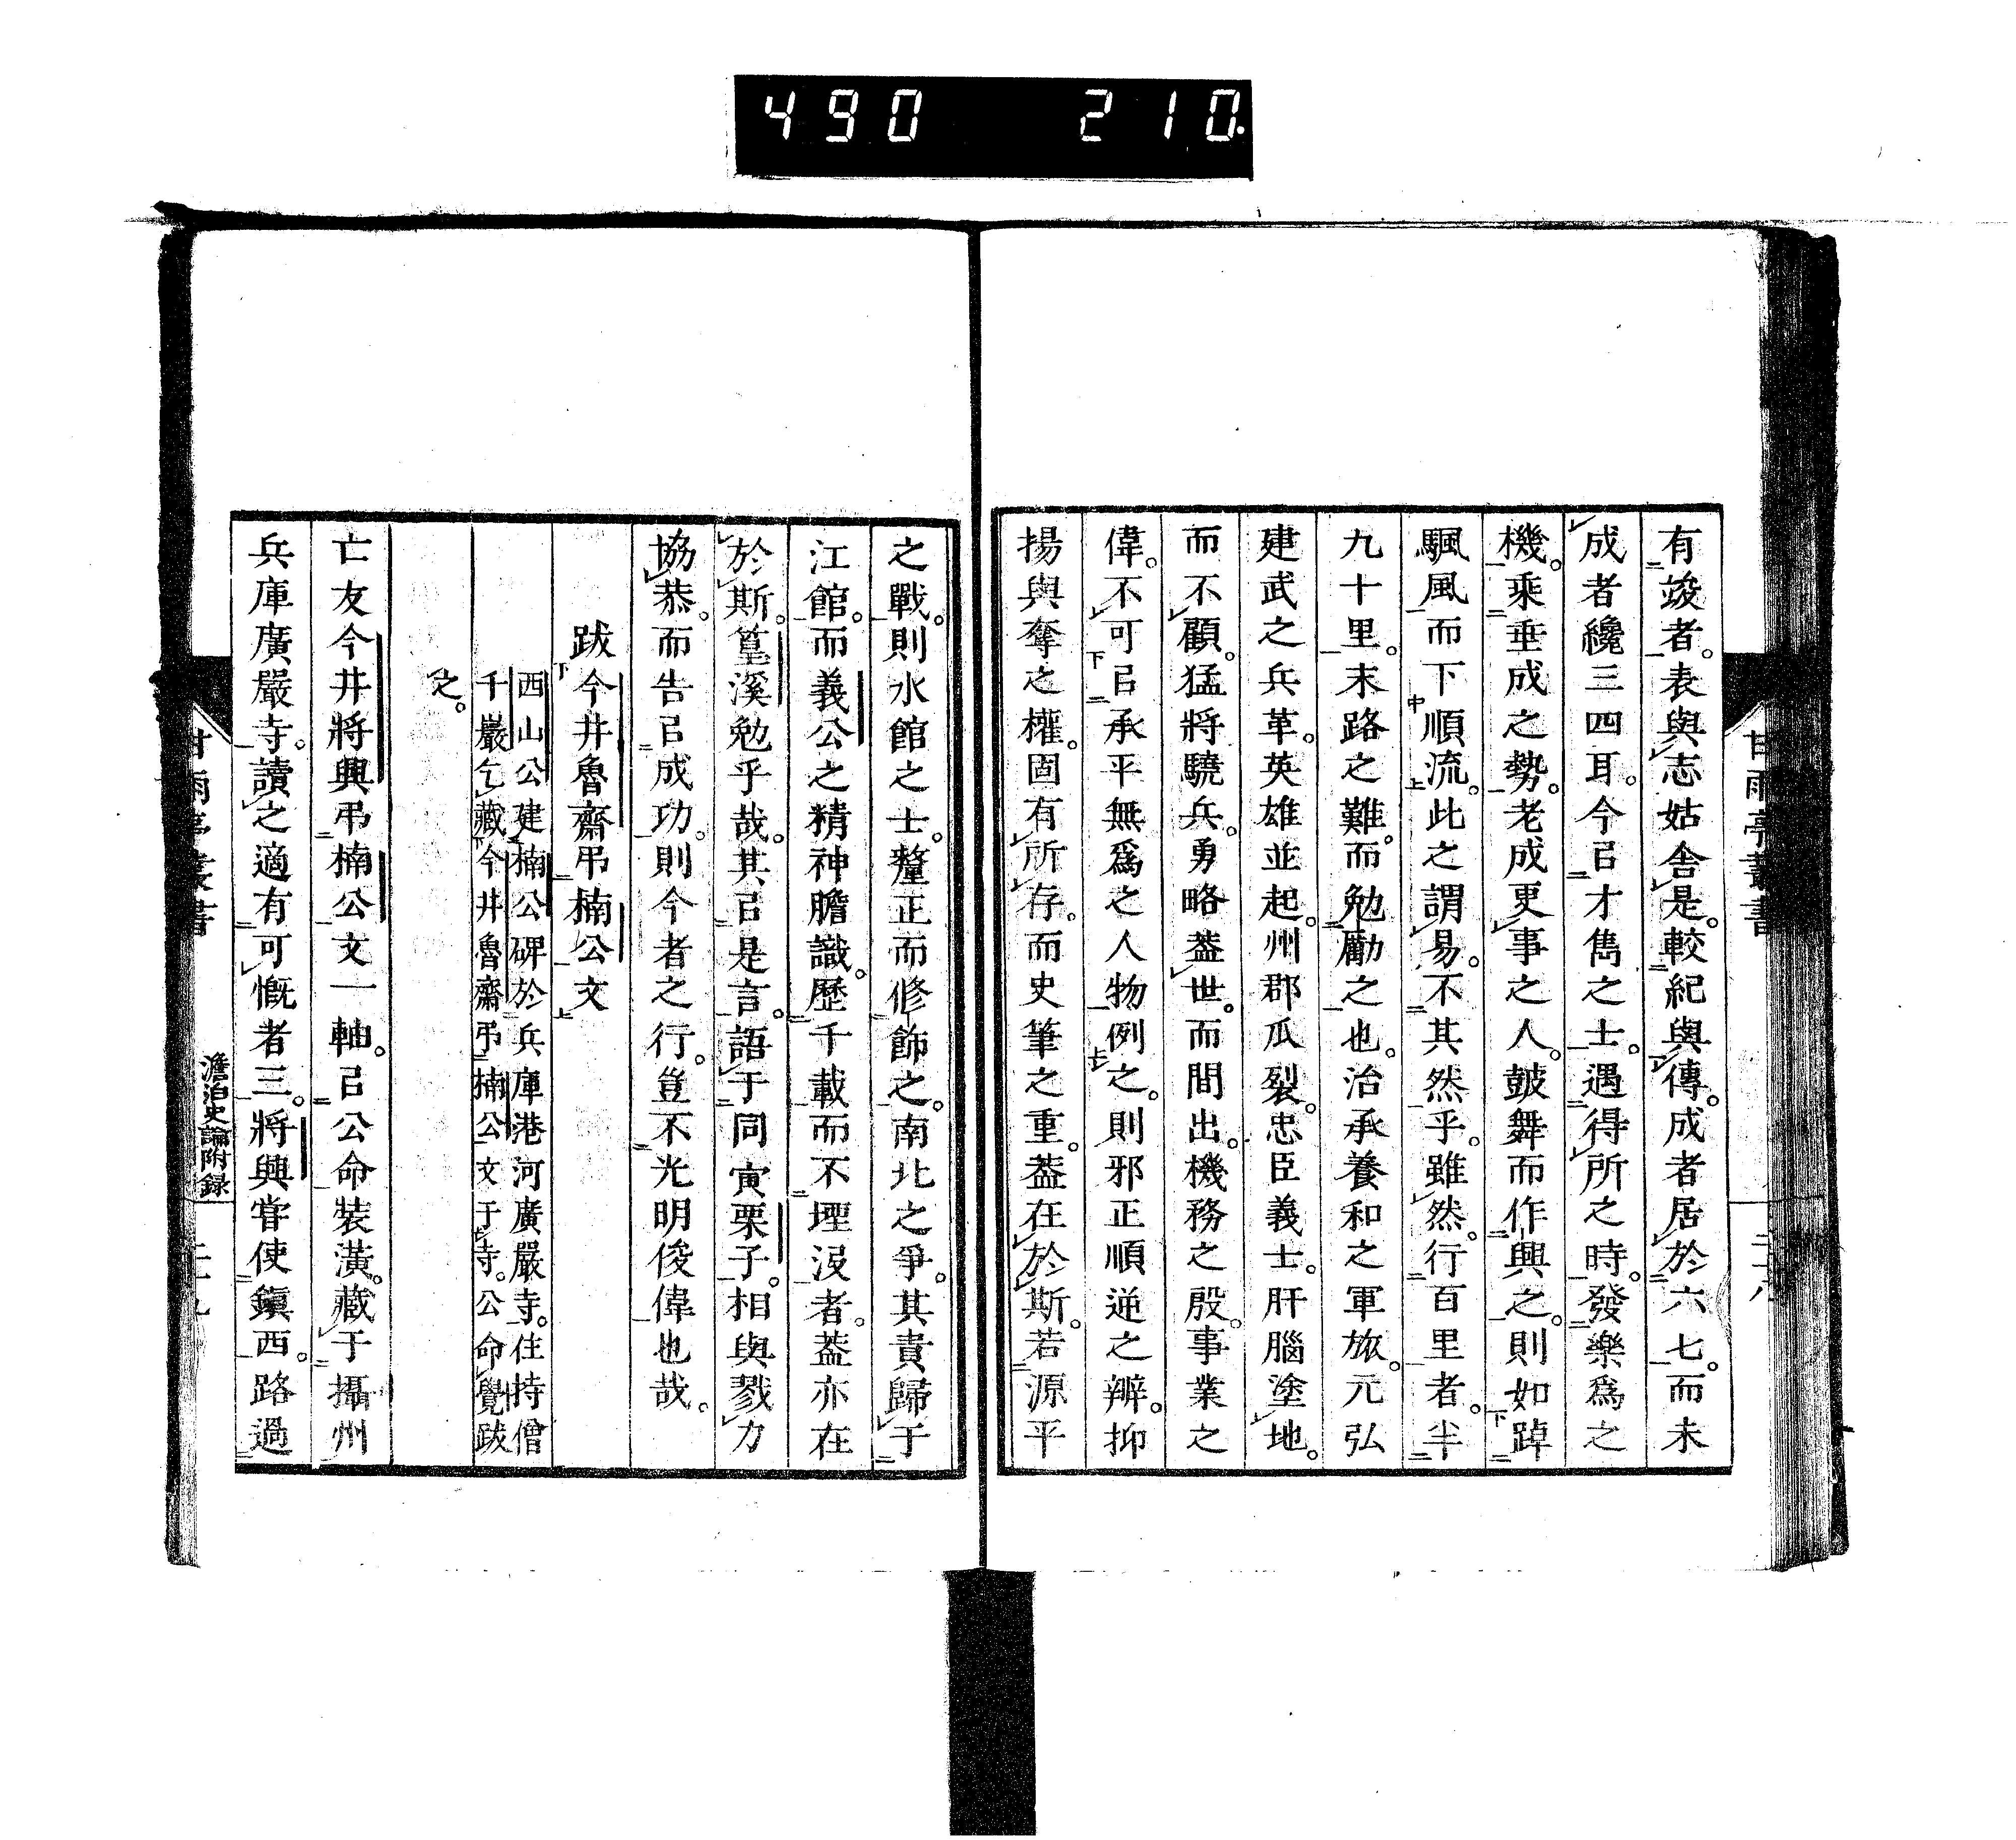 490 210
甘雨亭叢書
有竣者。表與志姑舍是。較紀與傳。成者居於六七。而未
成者纔三四耳。今㠯才雋之士。遇得所之時。發樂爲之
機。乘垂成之勢。老成更事之人。皷舞而作興之。則如踔
颿風而下順流。此之謂易。不其然乎。雖然。行百里者。半
九十里。末路之難。而勉勵之也。治承養和之軍旅。元弘
建武之兵革。英雄並起。州郡瓜裂。忠臣義士。肝腦塗地。
而不顧。猛將驍兵。勇略蓋世。而間出。機務之殷。事業之
偉。不可㠯承平無爲之人物例之。則邪正順逆之辨。抑
揚與奪之權。固有所存。而史筆之重。蓋在於斯。若源平
之戰。則水館之士。釐正而修飾之。南北之爭。其責歸于
江館。而義公之精神膽識。歷千載而不堙沒者。蓋亦在
於斯。篁溪勉乎哉。其㠯是言。語于同寅栗子。相與戮力
協恭。而告㠯成功。則今者之行。豈不光明俊偉也哉。
跋今井魯齋弔楠公文
西山公建楠公碑於兵庫港河廣嚴寺。住持僧
千巖乞藏今井魯齋弔楠公文于寺。公命覺跋
之。
亡友今井將興弔楠公文一軸。㠯公命裝潢。藏于攝州
兵庫廣嚴寺。讀之適有可慨者三。將興甞使鎭西。路過
甘雨亭叢書
澹泊史論附録